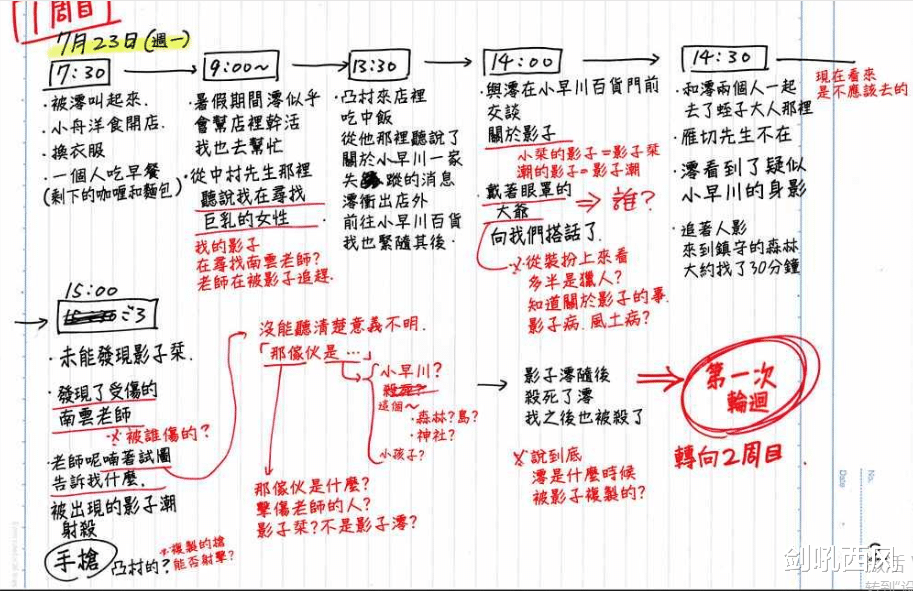 1周目
7月23日(週一)
7:30
・被澪叫起來.
・小舟洋食開店.
・換衣服
・一個人吃早餐
(剩下的咖喱和麵包)
9:00~
・暑假期間澪似乎
會幫店裡幹活
我也去幫忙
・從中村先生那裡
聽說我在尋找
巨乳的女性
我的影子
在尋找南雲老師?
老師在被影子追趕.
13:30
・凸村來店裡
吃中飯
從他那裡聽說了
關於小早川一家
失蹤的消息
澪衝出店外
前往小早川百貨
我也緊隨其後.
14:00
・與澪在小早川百貨門前
交談
關於影子
小栞的影子=影子栞
潮的影子=影子潮
・戴著眼罩的
大爺
⇒誰?
向我們搭話了.
※從裝扮上來看
多半是獵人?
知道關於影子的事.
影子病.風土病?
14:30
・和澪兩個人一起
去了蛭子大人那裡
現在看來
是不應該去的
・雁切先生不在
・澪看到了疑似
小早川的身影
・追著人影
來到鎮守的森林
大約找了30分鐘
15:00
ごろ
・未能發現影子栞.
・發現了受傷的
南雲老師
※被誰傷的?
老師呢喃著試圖
告訴我什麼.
被出現的影子潮
射殺
手槍
凸村的?
※複製的槍
能否射擊?
沒能聽清楚意義不明.
「那傢伙是…」
小早川?
這個~
・森林?島?
・神社?
小孩子?
那傢伙是什麼?
擊傷老師的人?
影子栞?不是影子澪?
影子澪隨後
殺死了澪
我之後也被殺了
※說到底
澪是什麼時候
被影子複製的?
第一次
輪迴
轉向2周目.
No.
Date
剑吼西风
激活
转到"设